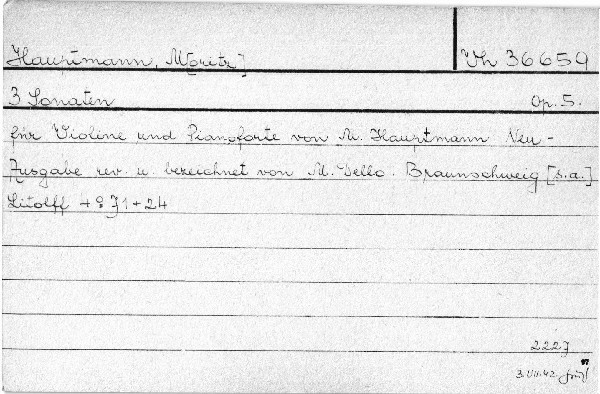 Hauptmann, M[oritz] Vh 36659
3 Sonaten Op. 5.
für Violine und Pianoforte von M. Hauptmann Neu-
Ausgabe rev. u. bezeichnet von M. Vello. Braunschweig [s.a.]
Litolff 71+24
2227
3.VIII.42